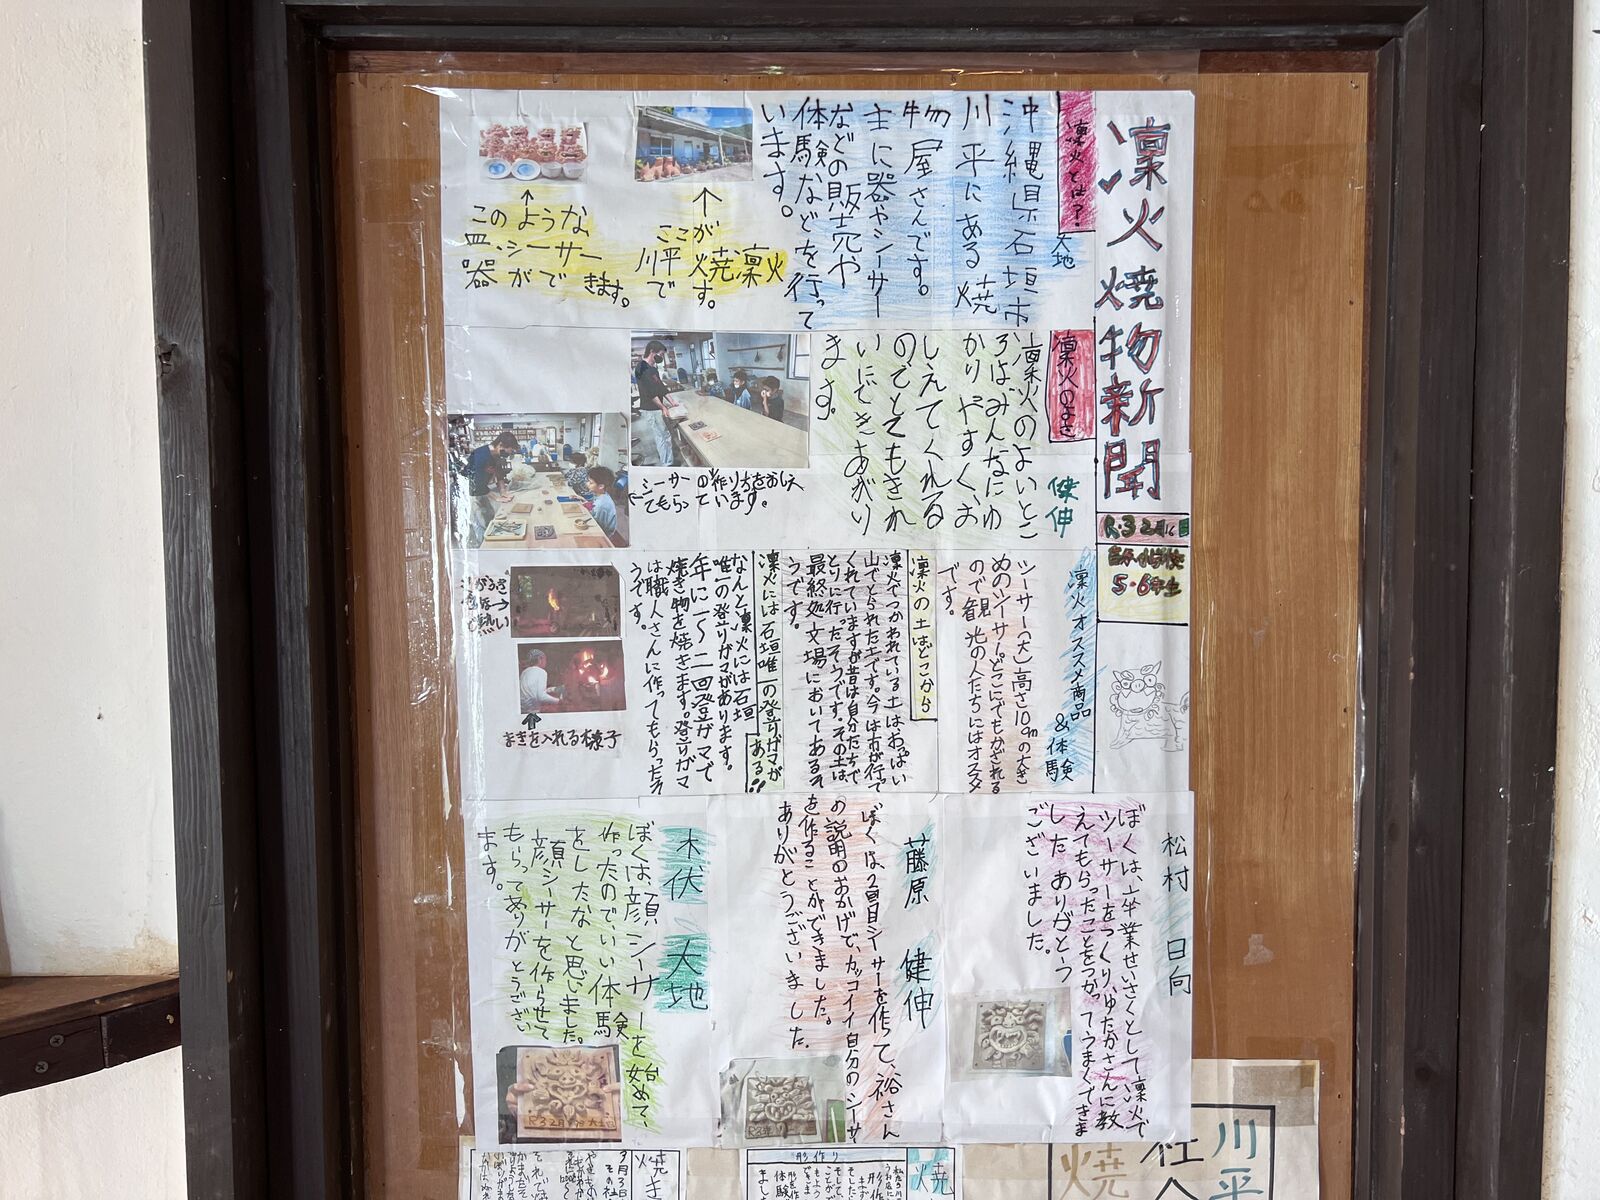 凜火焼物新聞
R.3 2月16日
5・6年生
凜火とは?
大地
沖縄県石垣市
川平にある焼
物屋さんです。
主に器やシーサー
などの販売や
体験などを行って
います。
↑
ここが
川平焼凜火
です。
↑
このような
皿、シーサー
器ができます。
凜火のよさ
健伸
凜火のよいとこ
ろは、みんなにゆ
かりやすく、お
しえてくれる
のでとてもきれ
いにできあがり
ます。
シーサーの作り方をおしえ
てもらっています。
凜火オススメ商品
&体験
シーサー(大)高さ10cmの大き
めのシーサー。どこにでもかざれる
ので観光の人たちにはオススメ
です。
凜火の土はどこから
凜火でつかわれている土はおっぱい
山でとられた土です。今は市が行って
くれていますが昔は自分たちで
とりに行ったそうです。その土は、
最終処文場においてあるそ
うです。
凜火には石垣唯一の登りガマが
ある!!
なんと凜火には石垣
唯一の登りガマがあります。
年に一~二回登りガマで
焼き物を焼きます。登りガマ
は職人さんに作ってもらったそ
うです。
まきを入れる様子
松村 日向
ぼくは、卒業せいさくとして凜火で
シーサーをつくり、ゆたかさんに教
えてもらったことをつかってうまくできま
した ありがとう
ございました。
藤原 健伸
ぼくは、2回目シーサーを作って、裕さん
の説明のおかげで、カッコイイ自分のシーサー
を作ることができました。
ありがとうございました。
木伏 大地
ぼくは、顔シーサーを始めて、
作ったので、いい体験
をしたなと思いました。
顔シーサーを作らせて
もらってありがとうござい
ます。
川平
焼
形作り
焼